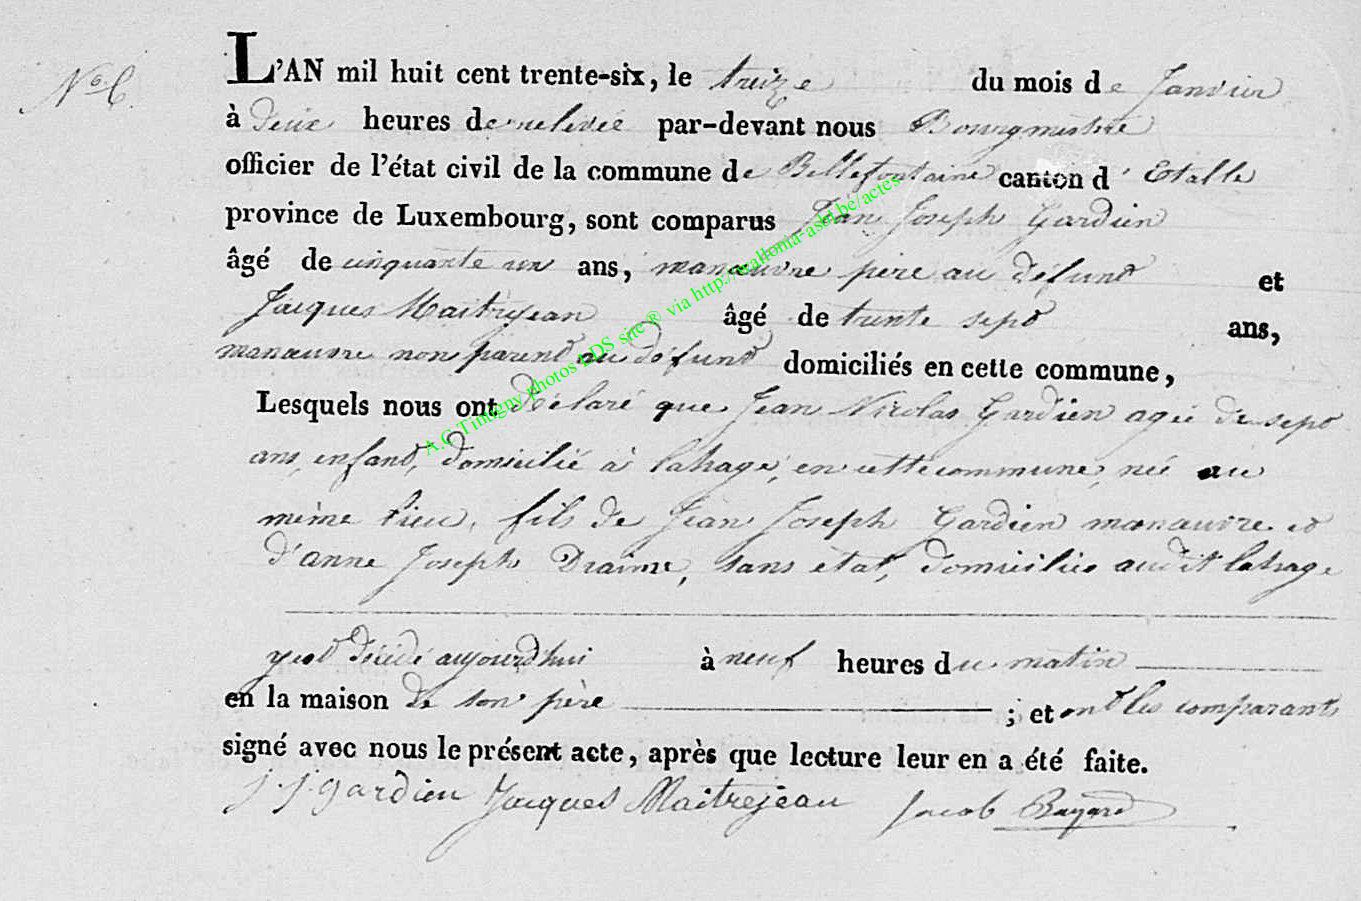 N° 6.
L'AN mil huit cent trente-six, le treize du mois de Janvier
à deux heures de relevée par-devant nous Bourgmestre
officier de l'état civil de la commune de Bellefontaine canton d' Etalle
province de Luxembourg, sont comparus Jean Joseph Gardien
âgé de cinquante un ans, manœuvre père au défunt et
Jacques Maitrejean âgé de trente sept ans,
manœuvre non parent au défunt domiciliés en cette commune,
Lesquels nous ont déclaré que Jean Nicolas Gardien agé de sept
ans, enfant, domicilié à lahage, en cette commune, né au
même lieu, fils de Jean Joseph Gardien manœuvre et
d'anne Joseph Draime, sans état, domiciliés audit lahage
y est décédé aujourd'hui à neuf heures du matin
en la maison de son père ; et ont les comparants
signé avec nous le présent acte, après que lecture leur en a été faite.
j. j. gardien Jacques Maitrejean Jacob Bayard
A.G Tintigny photos LDS site ® via http://wallonia-asbl.be/actes